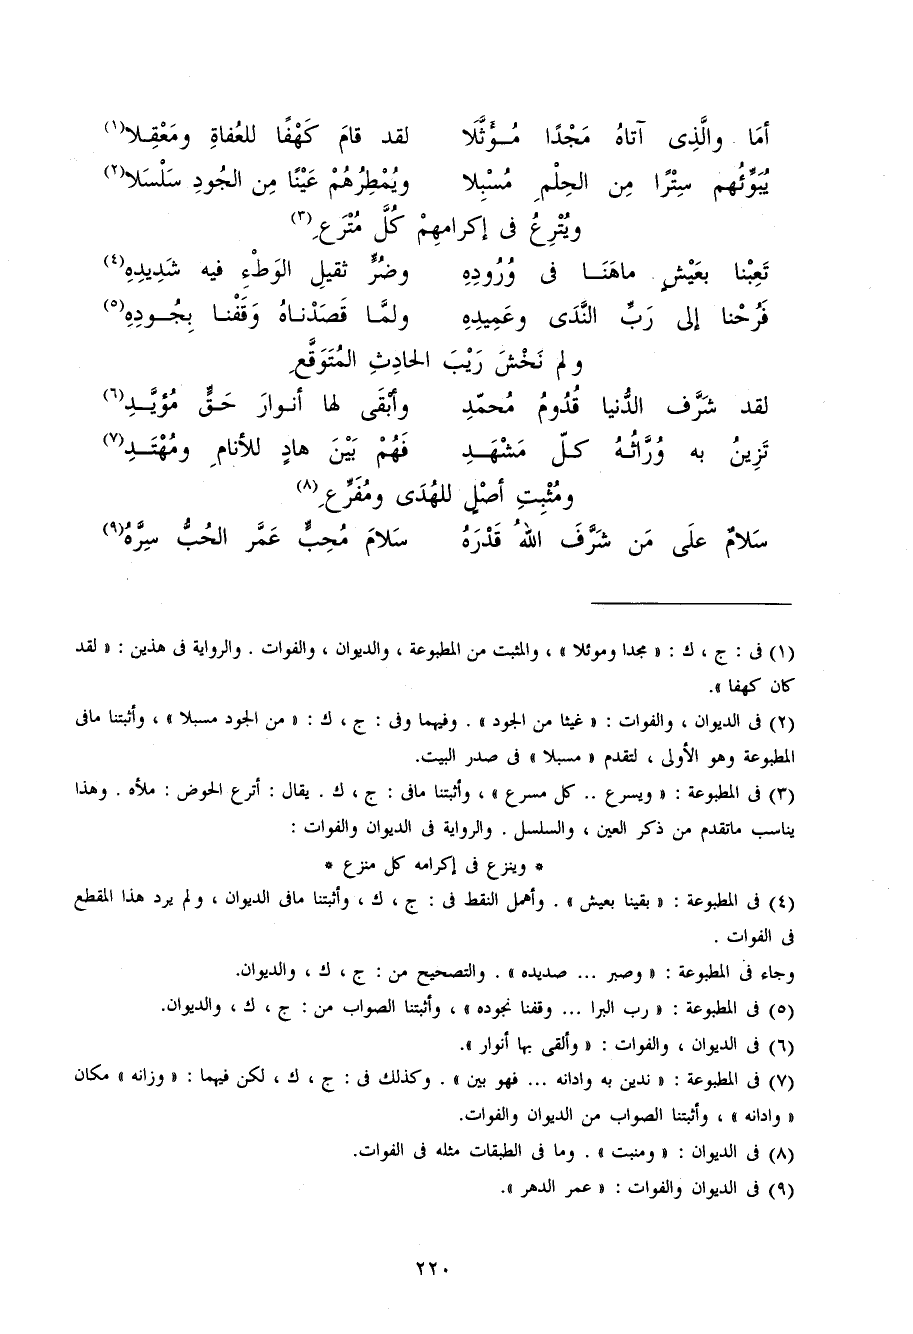 أمَا والَّذِى آتاهُ مَجْدًا مُـؤَثَّلَا لقد قامَ كَهْفًا للعُفاةِ ومَعْقِـلا(١)
يُبَوِّئُهم سِتْرًا مِن الحِلْمِ مُسْبِلا ويُمْطِرُهُمْ عَيْنًا مِن الجُودِ سَلْسَلا(٢)
ويُتْرِعُ فى إكرامِهِمْ كُلَّ مُتْرَعِ(٣)
تَعِبْنا بعَيْشٍ ماهَنَـا فى وُرُودِهِ وضُرٍّ ثقيل الوَطْءِ فيه شَدِيدِهِ(٤)
فَرُحْنا إلى رَبِّ النَّدَى وعَمِيدِهِ ولمَّا قَصَدْنـاهُ وَقَفْنـا بِجُـودِهِ(٥)
ولم نَخْشَ رَيْبَ الحادِثِ المُتَوَقَّعِ
لقد شَرَّف الدُّنيا قُدُومُ مُحمّدِ وأبْقَى لها أنـوارَ حَـقٍّ مُؤيَّـدِ(٦)
تَزِينُ به وُرَّاثُـهُ كـلّ مَشْهَـدِ فَهُمْ بَيْنَ هادٍ للأنامِ ومُهْتَـدِ(٧)
ومُثْبِتِ أصْلٍ للهُدَى ومُفَرِّعِ(٨)
سَلامٌ علَى مَن شَرَّفَ اللهُ قَدْرَهُ سَلامَ مُحِبٍّ عَمَّر الحُبُّ سِرَّهُ(٩)
(١) فى : ج ، ك : « مجدا وموثلا » ، والمثبت من المطبوعة ، والديوان ، والفوات . والرواية فى هذين : « لقد
كان كهفا ».
(٢) فى الديوان ، والفوات : « غيثا من الجود » . وفيهما وفى : ج ، ك : « من الجود مسبلا » ، وأثبتنا مافى
المطبوعة وهو الأولى ، لتقدم « مسبلا » فى صدر البيت.
(٣) فى المطبوعة : « ويسرع .. كل مسرع » ، وأثبتنا مافى : ج ، ك . يقال : أترع الحوض : ملأه . وهذا
يناسب ماتقدم من ذكر العين ، والسلسل . والرواية فى الديوان والفوات :
* وينزع فى إكرامه كل منزع *
(٤) فى المطبوعة : « بقينا بعيش » . وأهمل النقط فى : ج ، ك ، وأثبتنا مافى الديوان ، ولم يرد هذا المقطع
فى الفوات .
وجاء فى المطبوعة : « وصبر ... صديده » . والتصحيح من : ج ، ك ، والديوان.
(٥) فى المطبوعة : « رب البرا ... وقفنا نجوده » ، وأثبتنا الصواب من : ج ، ك ، والديوان.
(٦) فى الديوان ، والفوات : « وألقى بها أنوار ».
(٧) فى المطبوعة : « ندين به وادانه ... فهو بين » . وكذلك فى : ج ، ك ، لكن فيهما : « وزانه » مكان
« وادانه » ، وأثبتنا الصواب من الديوان والفوات.
(٨) فى الديوان : « ومنبت » . وما فى الطبقات مثله فى الفوات.
(٩) فى الديوان والفوات : « عمر الدهر ».
٢٢٠